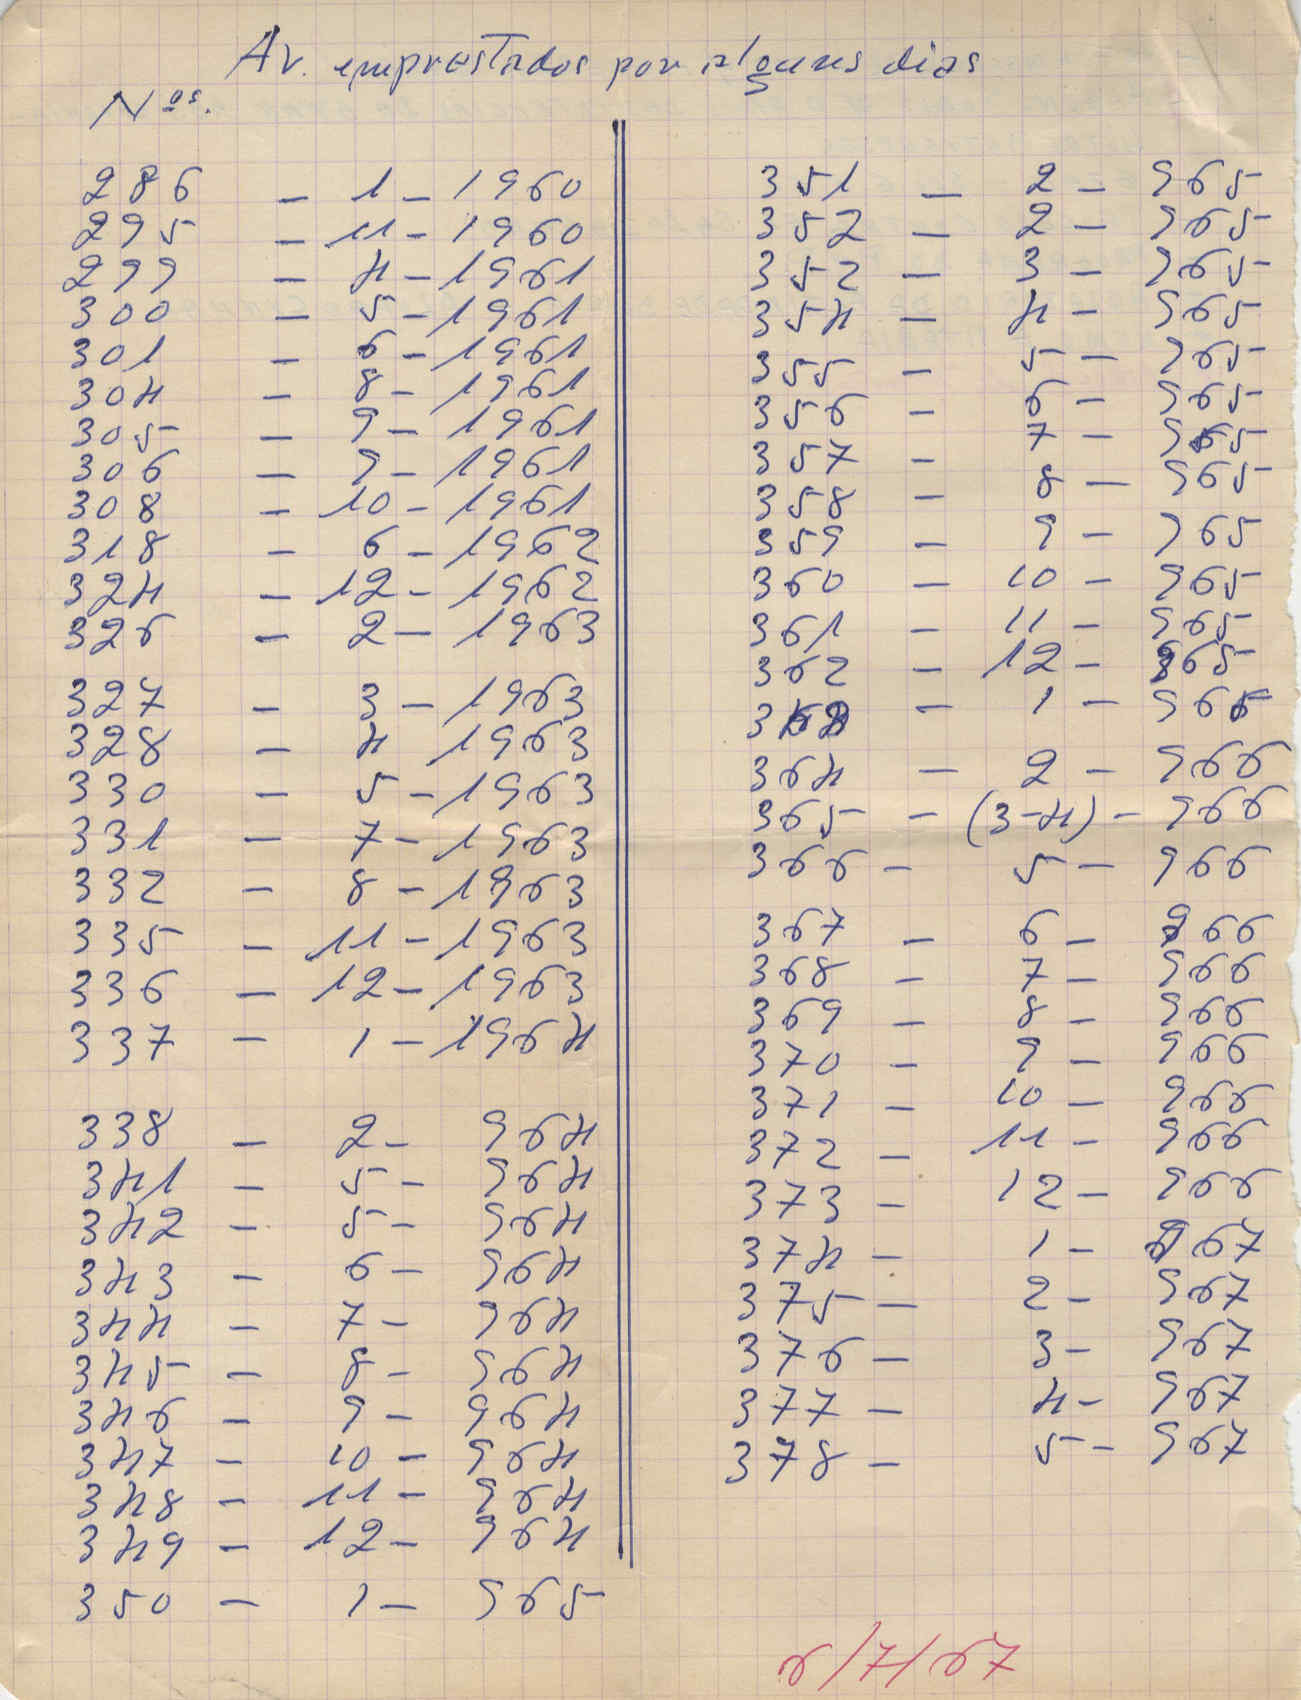 Av. emprestados por alguns dias
Nºs.
286 - 1 - 1960
295 - 11 - 1960
299 - 4 - 1961
300 - 5 - 1961
301 - 6 - 1961
304 - 8 - 1961
305 - 9 - 1961
306 - 9 - 1961
308 - 10 - 1961
318 - 6 - 1962
324 - 12 - 1962
326 - 2 - 1963
327 - 3 - 1963
328 - 4 - 1963
330 - 5 - 1963
331 - 7 - 1963
332 - 8 - 1963
335 - 11 - 1963
336 - 12 - 1963
337 - 1 - 1964
338 - 2 - 964
341 - 5 - 964
342 - 5 - 964
343 - 6 - 964
344 - 7 - 964
345 - 8 - 964
346 - 9 - 964
347 - 10 - 964
348 - 11 - 964
349 - 12 - 964
350 - 1 - 965
351 - 2 - 965
352 - 2 - 965
352 - 3 - 965
354 - 4 - 965
355 - 5 - 965
356 - 6 - 965
357 - 7 - 965
358 - 8 - 965
359 - 9 - 965
360 - 10 - 965
361 - 11 - 965
362 - 12 - 965
- 1 -
364 - 2 - 966
365 - (3-4) - 966
366 - 5 - 966
367 - 6 - 966
368 - 7 - 966
369 - 8 - 966
370 - 9 - 966
371 - 10 - 966
372 - 11 - 966
373 - 12 - 966
374 - 1 - 967
375 - 2 - 967
376 - 3 - 967
377 - 4 - 967
378 - 5 - 967
6/7/67